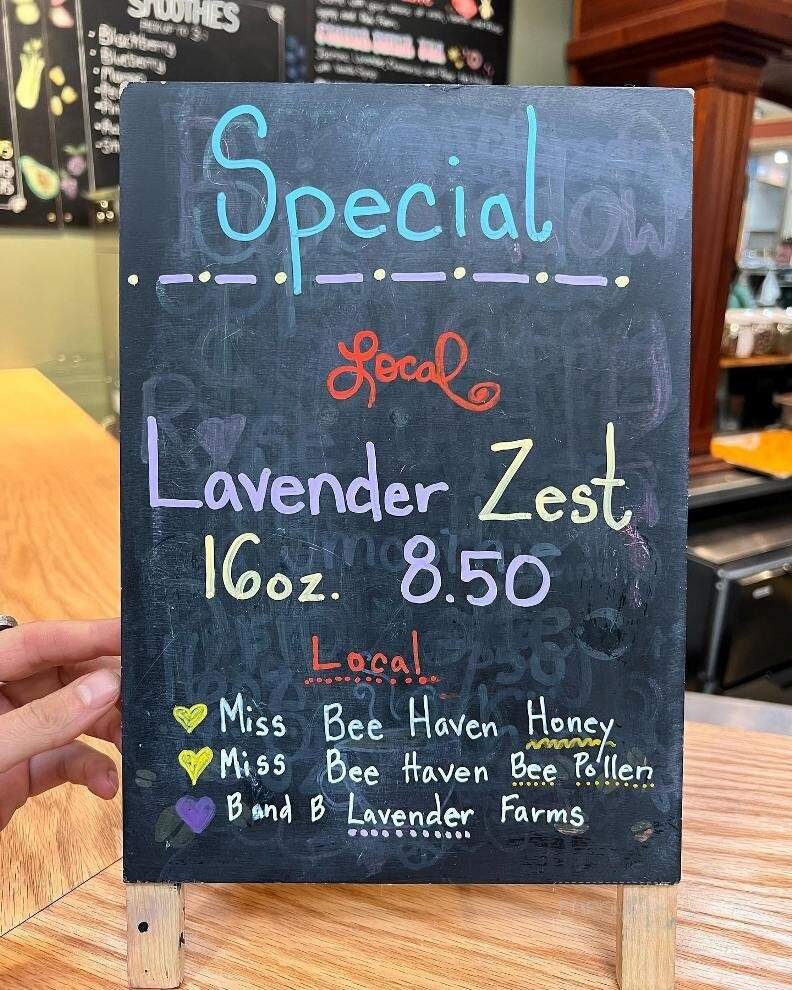 SMOOTHIES
- Blackberry
- Blueberry
Special
Local
Lavender Zest
16oz. 8.50
Local
Miss Bee Haven Honey
Miss Bee Haven Bee Pollen
B and B Lavender Farms